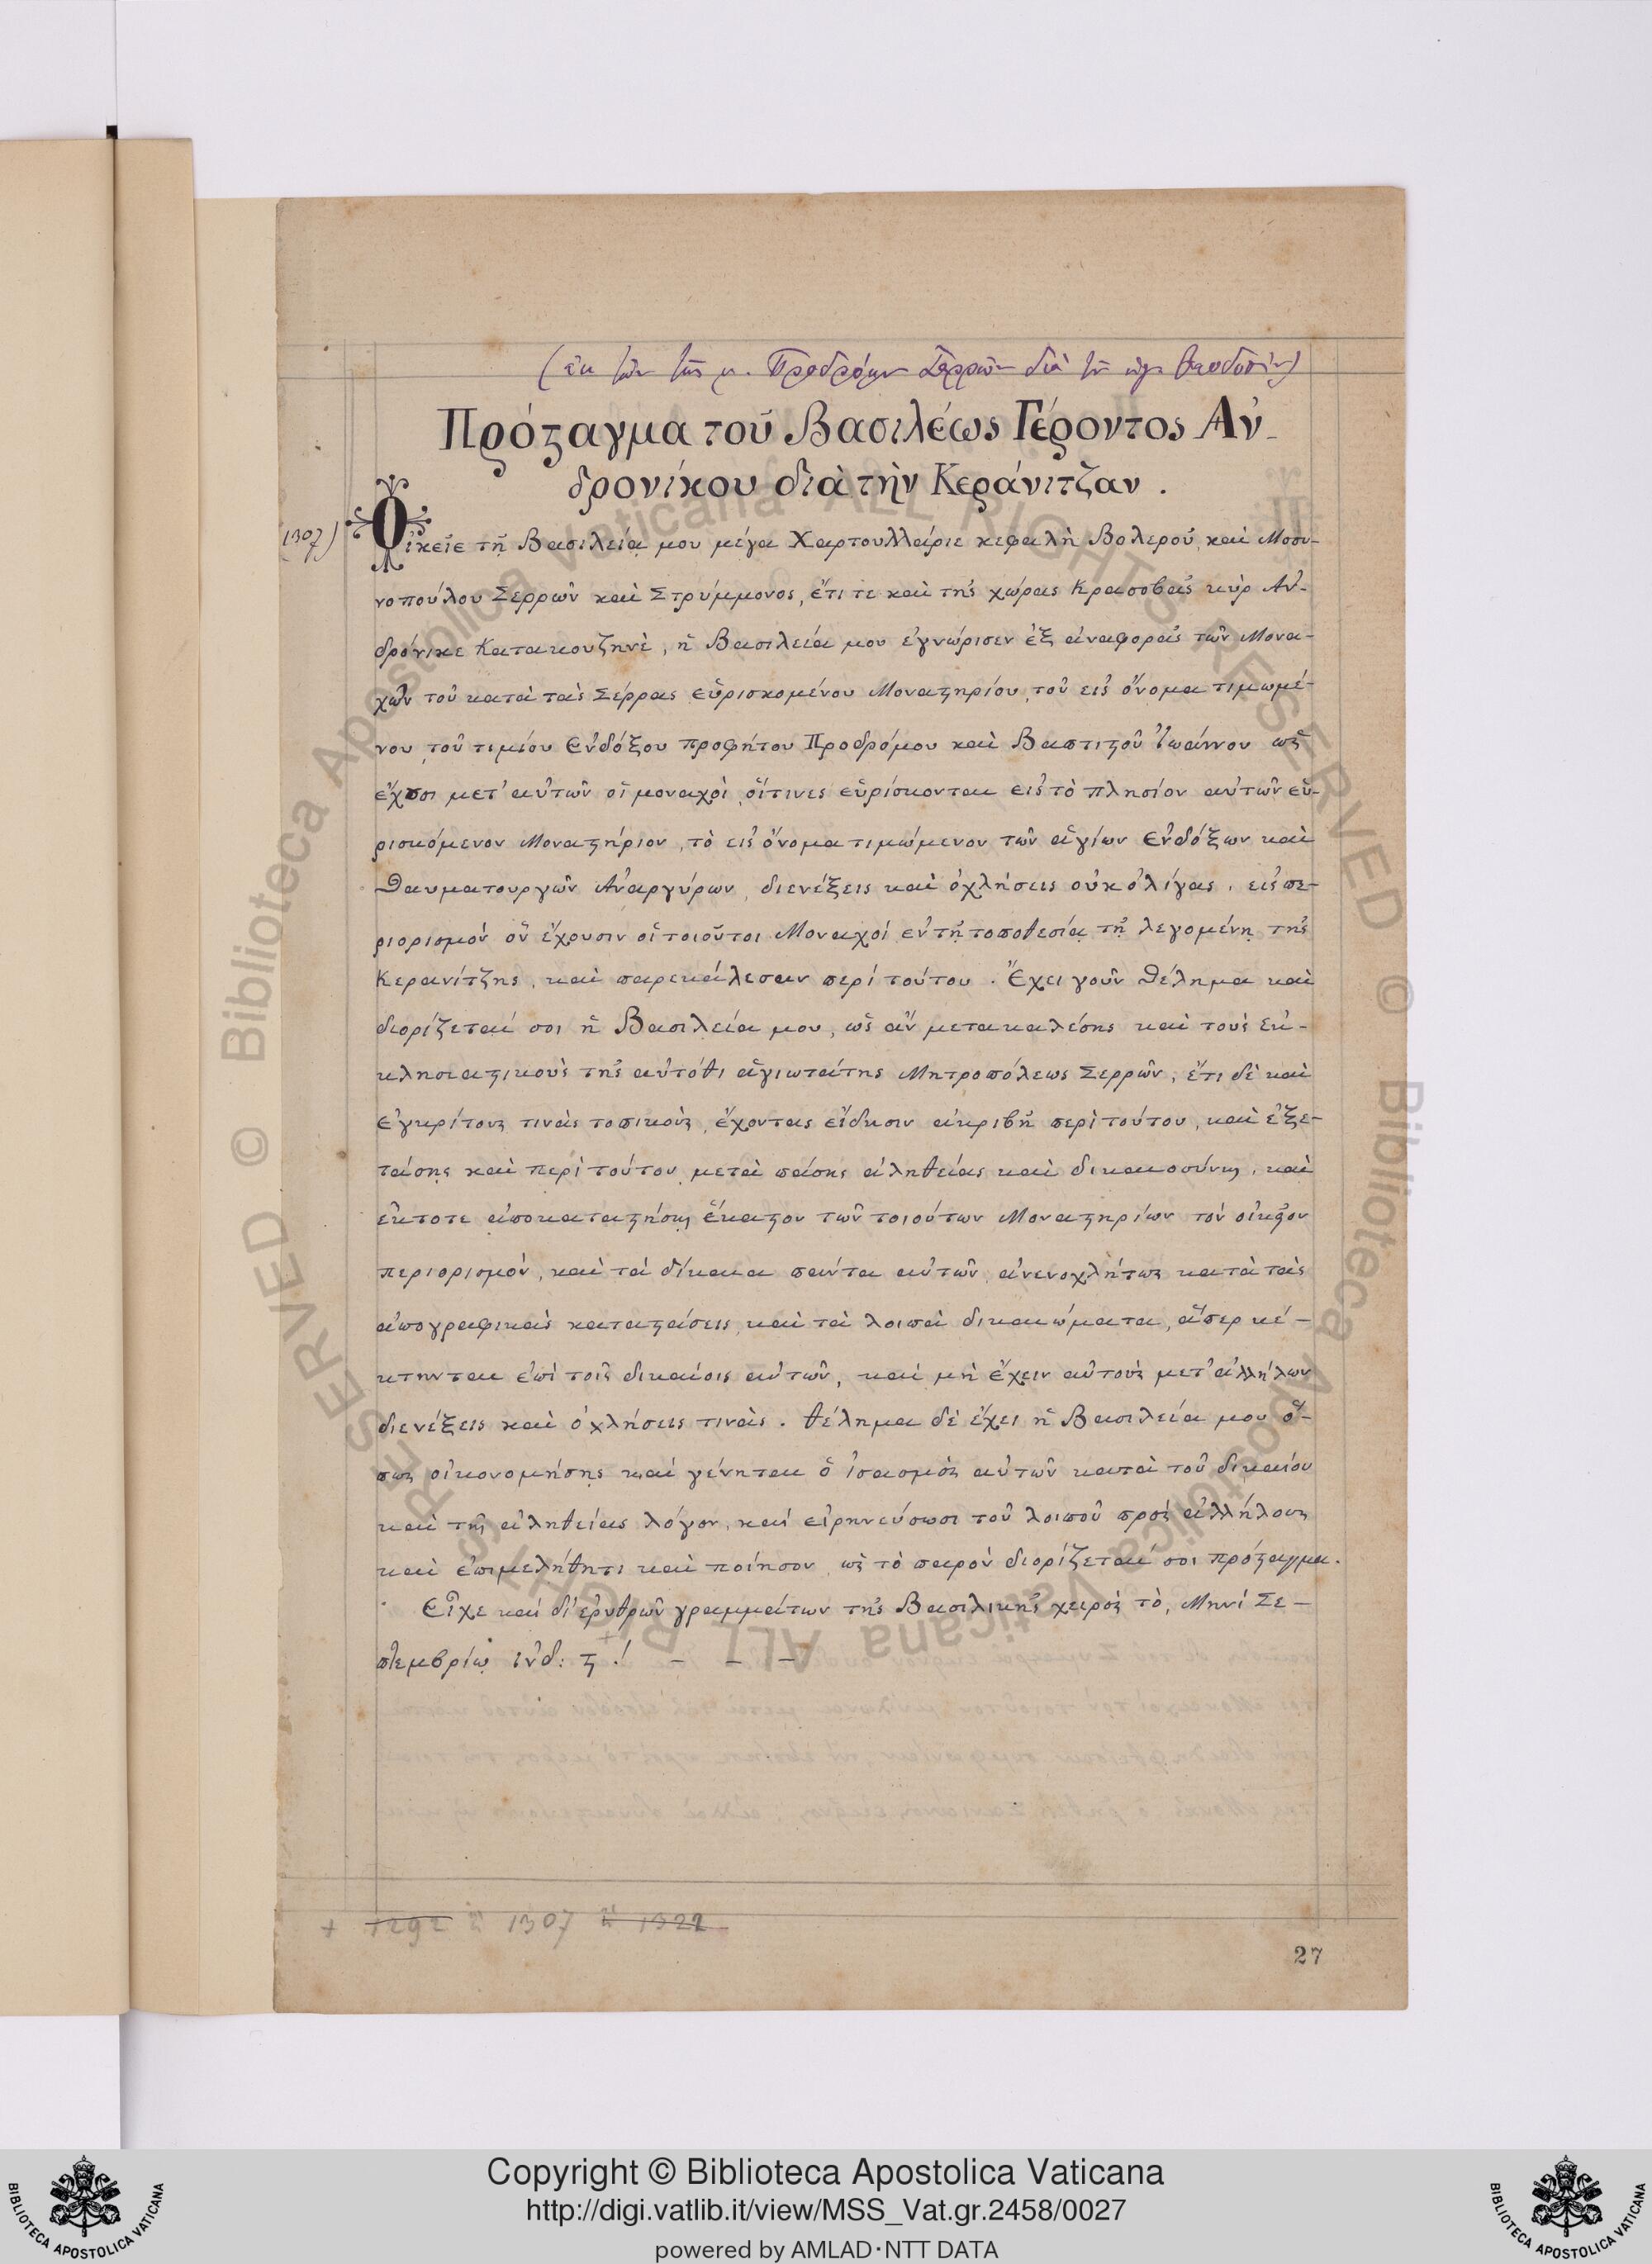 Πρόσταγμα τοῦ Βασιλέως Γέροντος Ἀν-
δρονίκου διὰ τὴν Κεράνιτζαν.
1307)
Οἰκεῖε τῇ Βασιλείᾳ μου μέγα Χαρτουλλάριε κεφαλὴ Βολεροῦ, καὶ Μοσυ-
νοπούλου Σερρῶν καὶ Στρύμμονος, ἔτι τε καὶ τῆς χώρας Κρασοβᾶς κὺρ Ἀν-
δρόνικε Κατακουζηνὲ, ἡ Βασιλεία μου ἐγνώρισεν ἐξ ἀναφορᾶς τῶν Μονα-
χῶν τοῦ κατὰ τὰς Σέρρας εὑρισκομένου Μοναστηρίου, τοῦ εἰς ὄνομα τιμωμέ-
νου τοῦ τιμίου ἐνδόξου προφήτου Προδρόμου καὶ Βαπτιστοῦ Ἰωάννου ὡς
ἔχουσι μετ' αὐτῶν οἱ μοναχοὶ οἵτινες εὑρίσκονται εἰς τὸ πλησίον αὐτῶν εὑ-
ρισκόμενον Μοναστήριον, τὸ εἰς ὄνομα τιμώμενον τῶν ἁγίων ἐνδόξων καὶ
θαυματουργῶν Ἀναργύρων, διενέξεις καὶ ὀχλήσεις οὐκ ὀλίγας, εἰς πε-
ριορισμὸν ὃν ἔχουσιν οἱ τοιοῦτοι Μοναχοὶ ἐν τῇ τοποθεσίᾳ τῇ λεγομένῃ τῆς
Κερανίτζης, καὶ παρεκάλεσαν περὶ τούτου. Ἔχει γοῦν θέλημα καὶ
διορίζεταί σοι ἡ Βασιλεία μου, ὡς ἂν μετακαλέσῃς καὶ τοὺς ἐκ-
κλησιαστικοὺς τῆς αὐτόθι ἁγιωτάτης Μητροπόλεως Σερρῶν, ἔτι δὲ καὶ
ἐγκρίτους τινὰς τοπικοὺς, ἔχοντας εἴδησιν ἀκριβῆ περὶ τούτου, καὶ ἐξε-
τάσῃς καὶ περὶ τούτου μετὰ πάσης ἀληθείας καὶ δικαιοσύνης, καὶ
ἔκτοτε ἀποκαταστήσῃς ἕκαστον τῶν τοιούτων Μοναστηρίων τὸν οἰκεῖον
περιορισμὸν, καὶ τὰ δίκαια πάντα αὐτῶν, ἀνενοχλήτως κατὰ τὰς
ἀπογραφικὰς καταστάσεις, καὶ τὰ λοιπὰ δικαιώματα, ἅπερ κέ-
κτηνται ἐπὶ τοῖς δικαίοις αὐτῶν, καὶ μὴ ἔχειν αὐτοὺς μετ' ἀλλήλων
διενέξεις καὶ ὀχλήσεις τινὰς. θέλημα δὲ ἔχει ἡ Βασιλεία μου ὅ-
πως οἰκονομήσῃς καὶ γένηται ὁ ἰσασμὸς αὐτῶν κατὰ τοῦ δικαίου
καὶ τῆς ἀληθείας λόγον, καὶ εἰρηνεύσωσι τοῦ λοιποῦ πρὸς ἀλλήλους
καὶ ἐπιμελήθητι καὶ ποίησον, ὡς τὸ παρὸν διορίζεταί σοι πρόσταγμα.
Εἶχε καὶ δι' ἐρυθρῶν γραμμάτων τῆς Βασιλικῆς χειρὸς τὸ, Μηνὶ Σε-
πτεμβρίῳ ἰνδ: ϛ .! – – –
+ 1292 ἢ 1307 ἢ 1322
27
Copyright © Biblioteca Apostolica Vaticana
http://digi.vatlib.it/view/MSS_Vat.gr.2458/0027
powered by AMLAD·NTT DATA
BIBLIOTECA APOSTOLICA VATICANA
BIBLIOTECA APOSTOLICA VATICANA
© Biblioteca Apostolica Vaticana ALL RIGHTS RESERVED
© Biblioteca Apostolica Vaticana ALL RIGHTS RESERVED